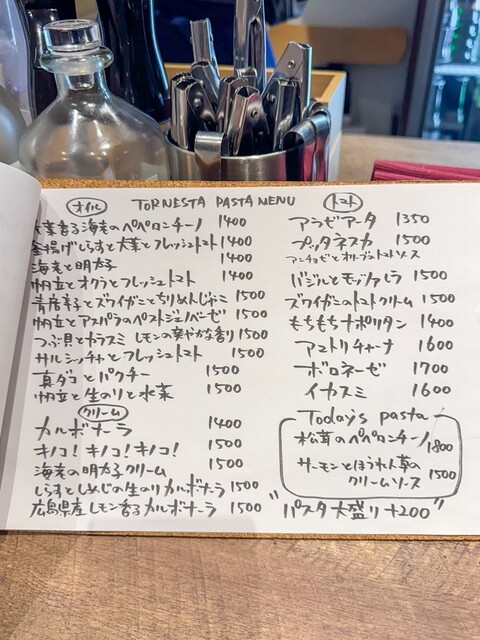 TORNESTA PASTA MENU
オイル
大葉香る海老のペペロンチーノ 1400
釜揚げしらすと大葉とフレッシュトマト 1400
海老と明太子 1400
帆立とオクラとフレッシュトマト 1400
青唐辛子とズワイガニとちりめんじゃこ 1500
帆立とアスパラのペストジェノベーゼ 1500
つぶ貝とカラスミ レモンの爽やかな香り 1500
サルシッチャとフレッシュトマト 1500
真ダコとパクチー 1500
帆立と生のりと水菜 1500
クリーム
カルボナーラ 1400
キノコ!キノコ!キノコ! 1500
海老の明太子クリーム 1500
しらすとしめじの生のりカルボナーラ 1500
広島県産レモン香るカルボナーラ 1500
トマト
アラビアータ 1350
プッタネスカ 1500
アンチョビとオリーブのトマトソース
バジルとモッツァレラ 1500
ズワイガニのトマトクリーム 1500
もちもちナポリタン 1400
アマトリチャーナ 1600
ボロネーゼ 1700
イカスミ 1600
Today's pasta
松茸のペペロンチーノ 1800
サーモンとほうれん草の
クリームソース 1500
"パスタ大盛り+200"